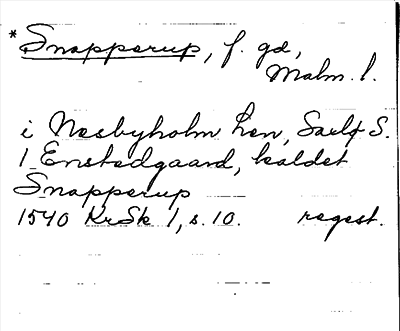 *Snapperup, f. gd,
Malm. l.
i Næsbyholm Len, Saltø S.
1 Enstedgaard, kaldet
Snapperup
1540 KrSk 1, s. 10. regest.